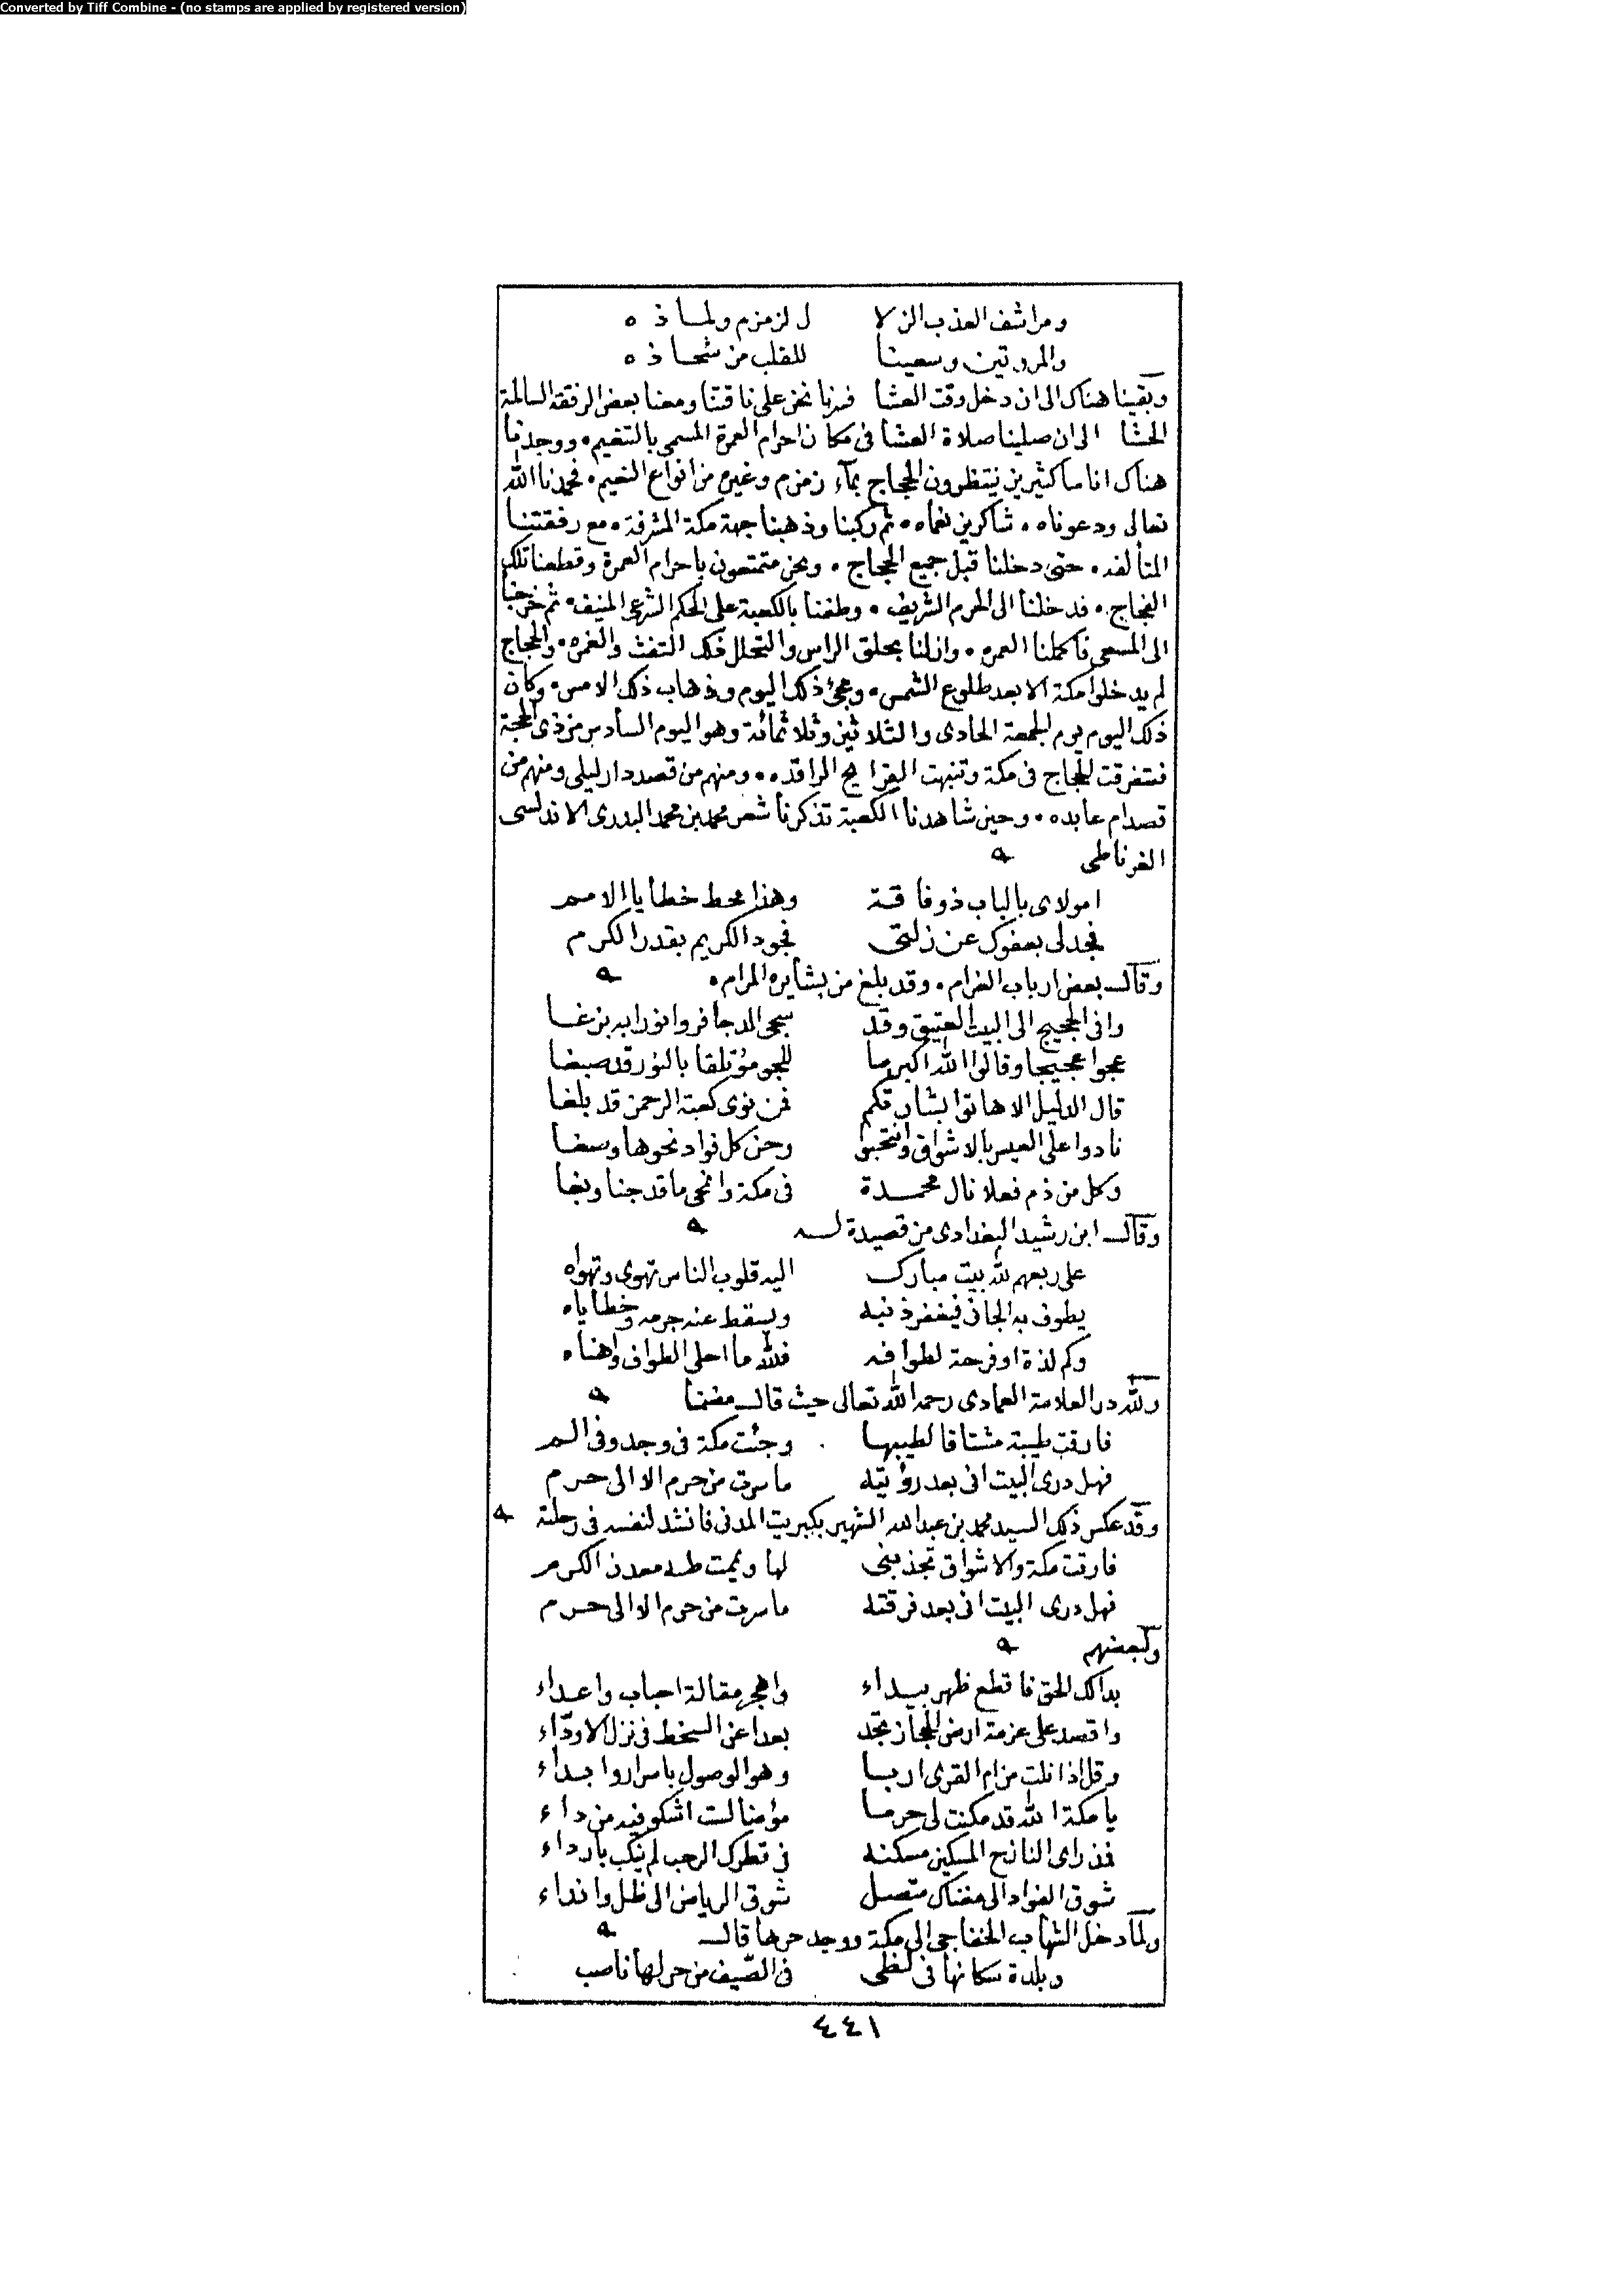 Converted by Tiff Combine - (no stamps are applied by registered version)
ومراشف العذب الزلا ل لزمزم ولماذه
والمروتين وسعينا للقلب من شحاذه
وبقينا هناك الى ان دخل وقت العشا فسرنا نحن على ناقتنا ومعنا بعض الرفقة السالمة
الحشا الى ان صلينا صلاة العشا فى مكان احرام العمرة المسمى بالتنعيم، ووجدنا
هناك اناسا كثيرين ينتظرون الحجاج بمآء زمزم وغيره من انواع النعيم، فحمدنا الله
تعالى ودعوناه، شاكرين نعماه، ثم ركبنا وذهبنا جهة مكة المشرفة، مع رفقتنا
المتألفه، حتى دخلنا قبل جميع الحجاج، ونحن متمتعون باحرام العمرة وقطعنا تلك
الفجاج، فدخلنا الى الحرم الشريف، وطفنا بالكعبة على الحكم الشرعى المنيف، ثم خرجنا
الى المسعى فاكملنا العمره، وازلنا بحلق الراس والتحلل ذلك التفث والغمره، والحجاج
لم يدخلوا مكة الا بعد طلوع الشمس، ومجئ ذلك اليوم وذهاب ذلك الامس، وكان
ذلك اليوم يوم الجمعة الحادى والثلاثين وثلاثمائة وهو اليوم السادس من ذى الحجة
فتفرقت الحجاج فى مكة وتنبهت القرايح الراقده، ومنهم من قصد دار ليلى ومنهم من
قصد ام عابده، وحين شاهدنا الكعبة تذكرنا شعر محمد بن محمد البدرى الاندلسى
الغرناطى
امولاى بالباب ذو فاقة وهذا محط خطايا الامم
فجد لى بعفوك عن زلتى فجود الكريم بقدر الكرم
وقال بعض ارباب الغرام، وقد بلغ من بشايره المرام،
وافى الحجيج الى البيت العتيق وقد سجى الدجا فروا نورا به بزغا
عجوا عجيجا وقالوا الله اكبر ما للجو مؤتلقا بالنور قد صبغا
قال الدليل الا هاتوا بشارتكم فمن نوى كعبة الرحمن قد بلغا
نادوا على العيس بالاشواق وانتحبوا وحن كل فواد نحوها وصغا
وكل من ذم فعلا نال محمدة فى مكة وانمحى ما قد جنا وبغا
وقال ابن رشيد البغدادى من قصيدة له
على ربعهم لله بيت مبارك اليه قلوب الناس تهوى وتهواه
يطوف به الجانى فيغفر ذنبه ويسقط عنه جرمه وخطاياه
وكم لذة او فرحة لطوافه فلله ما احلى الطواف واهناه
ولله در العلامة العمادى رحمه الله تعالى حيث قال مضمنا
فارقت طيبة مشتاقا لطيبها وجئت مكة فى وجد وفى الم
فهل درى البيت انى بعد رؤيته ما سرت من حرم الا الى حرم
وقد عكس ذلك السيد محمد بن عبد الله الشهير بكبريت المدنى فانشد لنفسه فى رحلته
فارقت مكة والاشواق تجذبنى لها ويممت طه معدن الكرم
فهل درى البيت انى بعد فرقته ما سرت من حرم الا الى حرم
ولبعضهم
بدا لك الحق فاقطع ظهر بيداء واهجر مقالة احباب واعداء
واقصد على عزمة ارض الحجاز تجد بعدا عن السخط فى نزل الاوداء
وقل اذا نلت من ام القرى اربا وهو الوصول باسرار وابداء
يا مكة الله قد مكنت لى حرما مؤمنا لست اشكو فيه من داء
فمذ راى النازح المسكين مسكنه فى قطرك الرحب لم ينكب بارداء
شوق الفواد الى مغناك متصل شوق الرياض الى ظل وانداء
ولما دخل الشهاب الخفاجى الى مكة ووجد حرها قال
وبلدة سكانها فى لظى فى الصيف من حر لها ناصب
٤٤١